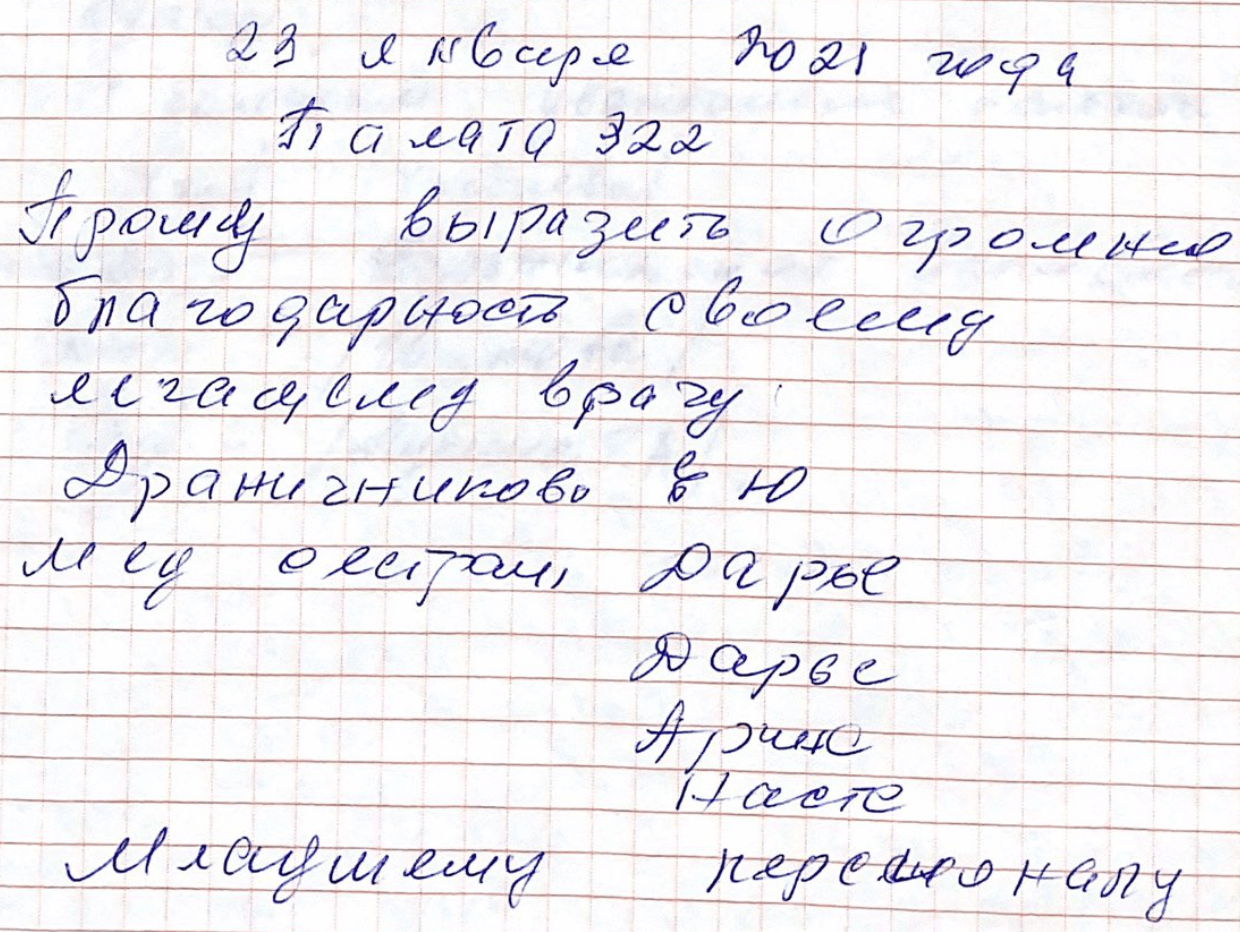 23 января 2021 года
Палата 322
Прошу выразить огромно
благодарность своему
лечащему врачу:
Драничниково В Ю
мед сестрам, Дарье
Дарье
Арине
Насте
Младшему персоналу